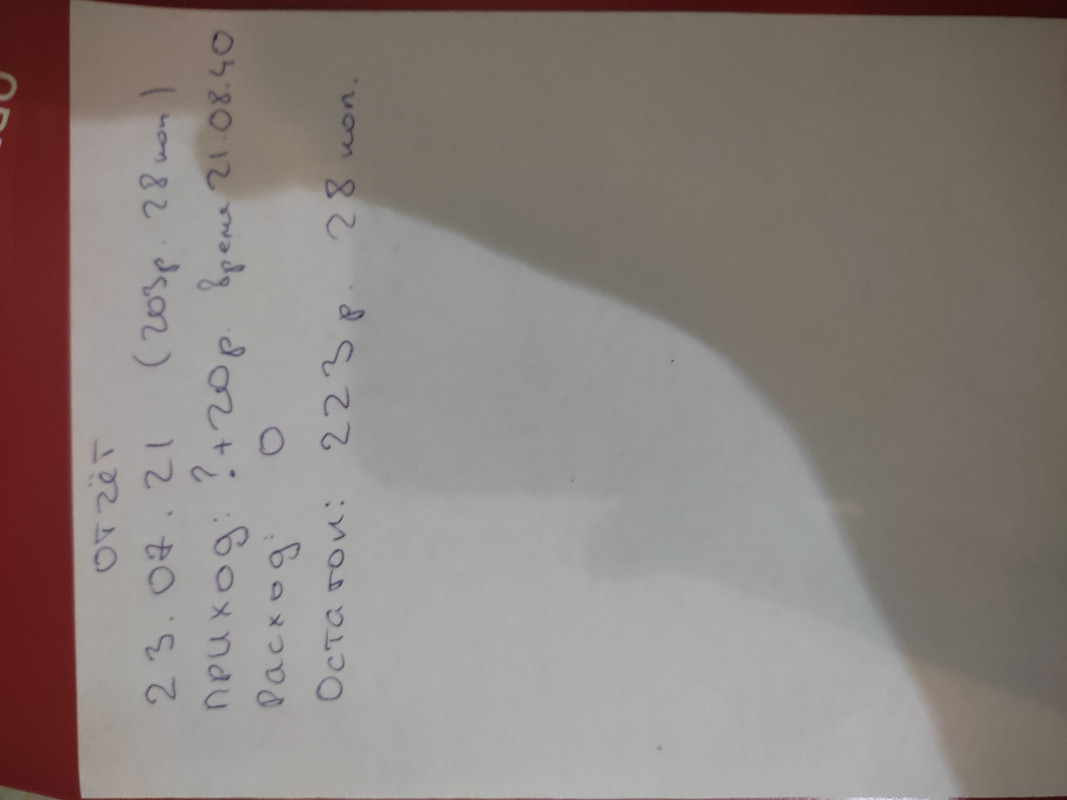 отчёт
23.07.21 (203р. 28 коп)
приход: ?+20р. время 21.08.40
Расход: 0
Остаток: 223 р. 28 коп.